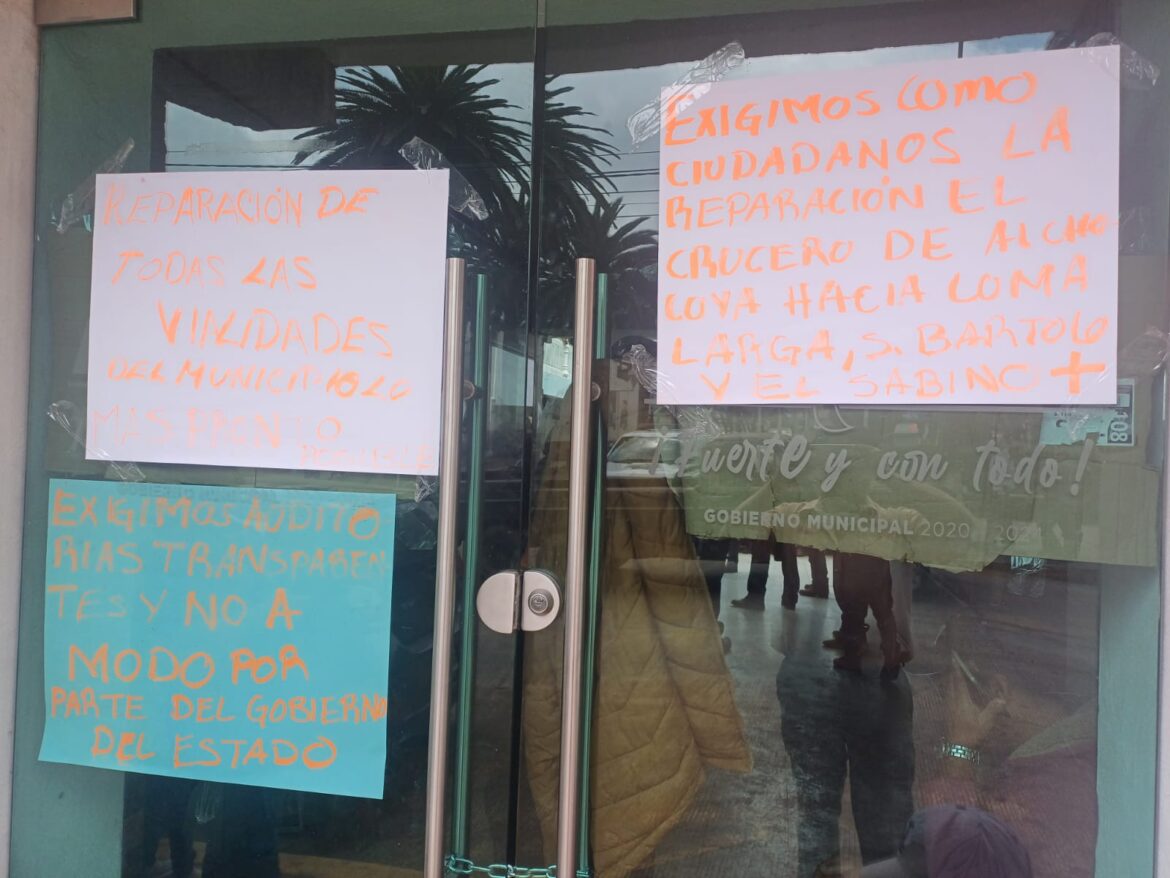 REPARACIÓN DE
TODAS LAS
VIALIDADES
DEL MUNICIPIO LO
MAS PRONTO
EXIGIMOS AUDITO
RIAS TRANSPAREN
TES Y NO A
MODO POR
PARTE DEL GOBIERNO
DEL ESTADO
EXIGIMOS COMO
CIUDADANOS LA
REPARACIÓN EL
CRUCERO DE AICHO
COYA HACIA LOMA
LARGA, S. BARTOLO
Y EL SABINO +
¡Fuerte y con todo!
GOBIERNO MUNICIPAL 2020 2024
GOBIERNO MUNICIPAL